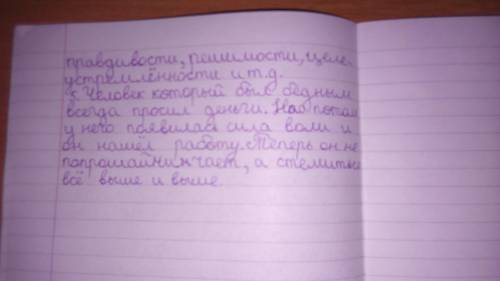 правдивости, решимости, целе-
устремлённости и т.д.
5. Человек который был бедным
всегда просил деньги. Но потом
у него появилась сила воли и
он нашел работу. Теперь он не
попрошайничает, а стемиться
всё выше и выше.